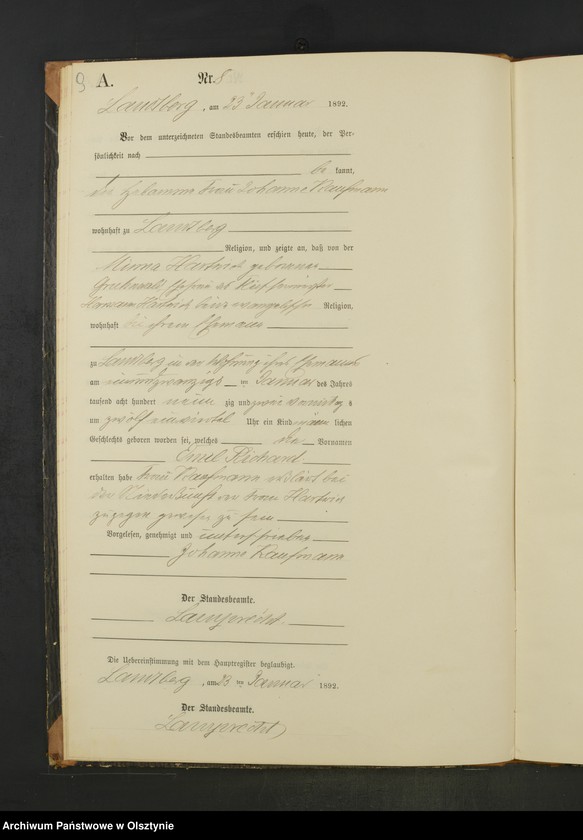 9 A. Nr. 8
Landsberg, am 23 Januar 1892.
Vor dem unterzeichneten Standesbeamten erschien heute, der Per-
sönlichkeit nach
be kannt,
die Hebamme Frau Johanne Kaufmann
wohnhaft zu Landsberg
Religion, und zeigte an, daß von der
geborenen
Grunwald Ehefrau des
evangelischer Religion,
wohnhaft bei ihrem Ehemann
zu Landsberg in der Wohnung ihres Ehemannes
am Januar des Jahres
tausend acht hundert neun zig und zwei
um zwölf Uhr ein Kind männ lichen
Geschlechts geboren worden sei, welches die Vornamen
Emil Richard
erhalten habe Frau Kaufmann erklärt bei
der Niederkunft der Frau
zugegen gewesen zu sein
Vorgelesen, genehmigt und unterschrieben
Johanne Kaufmann
Der Standesbeamte.
Lamprecht.
Die Uebereinstimmung mit dem Hauptregister beglaubigt.
Landsberg, am 23 ten Januar 1892.
Der Standesbeamte.
Lamprecht
Archiwum Państwowe w Olsztynie